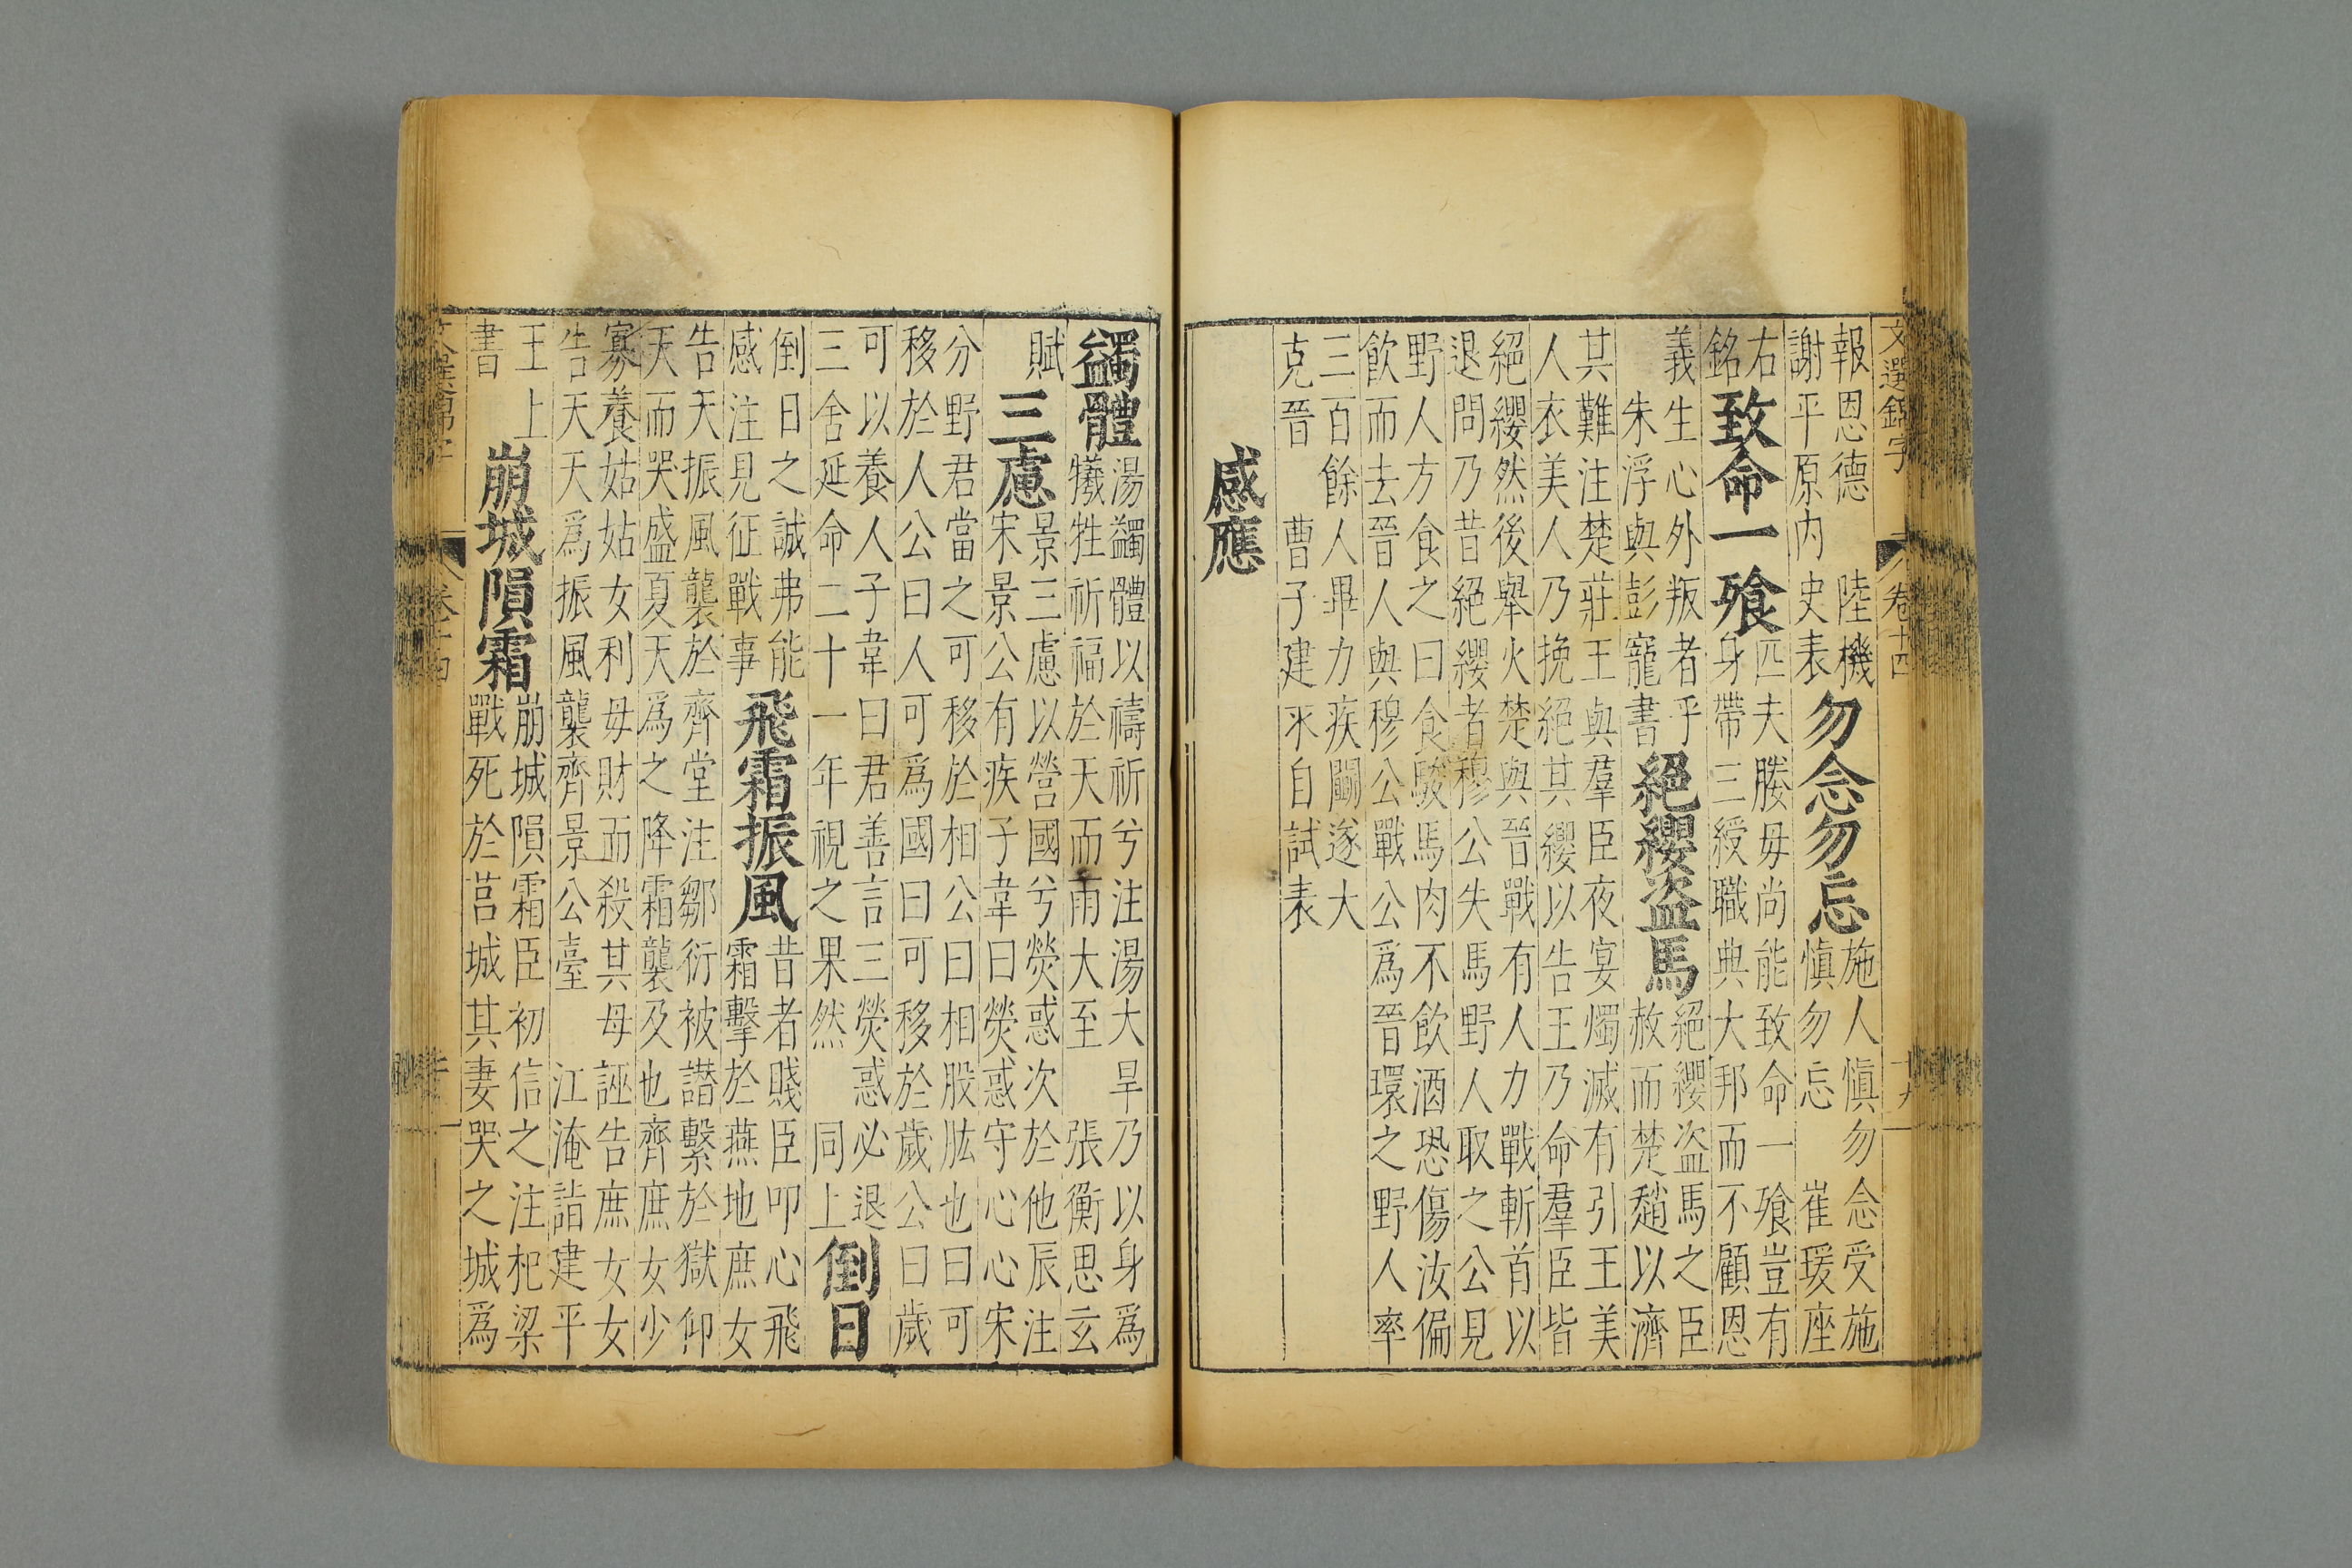 文選錦字 卷十四 十九
報恩德 陸機
謝平原内史表
勿念勿忘
施人愼勿念受施
愼勿忘 崔瑗座
右
銘
致命一飡
匹夫媵毋尚能致命一飡豈有
身帶三綬職典大邦而不顧恩
義生心外叛者乎
朱浮與彭寵書
絕纓盗馬
絕纓盗馬之臣
赦而楚趙以濟
其難注楚莊王與羣臣夜宴燭滅有引王美
人衣美人乃挽絕其纓以告王乃命羣臣皆
絕纓然後舉火楚與晉戰有人力戰斬首以
退問乃昔絕纓者穆公失馬野人取之公見
野人方食之曰食駿馬肉不飲酒恐傷汝偏
飲而去晉人與穆公戰公爲晉環之野人率
三百餘人畢力疾鬭遂大
克晉 曹子建求自試表
感應
蠲體
湯蠲體以禱祈兮注湯大旱乃以身爲
犧牲祈福於天而雨大至 張衡思玄
賦
三慮
景三慮以營國兮熒惑次於他辰注
宋景公有疾子韋曰熒惑守心心宋
分野君當之可移於相公曰相股肱也曰可
移於人公曰人可爲國曰可移於歲公曰歲
可以養人子韋曰君善言三熒惑必退
三舍延命二十一年視之果然 同上
倒日
倒日之誠弗能
感注見征戰事
飛霜振風
昔者賤臣叩心飛
霜擊於燕地庶女
告天振風襲於齊堂注鄒衍被譖繫於獄仰
天而哭盛夏天爲之降霜襲及也齊庶女少
寡養姑姑女利毋財而殺其母誣告庶女女
告天天爲振風襲齊景公臺 江淹詣建平
王上
書
崩城隕霜
崩城隕霜臣初信之注杞梁
戰死於莒城其妻哭之城爲